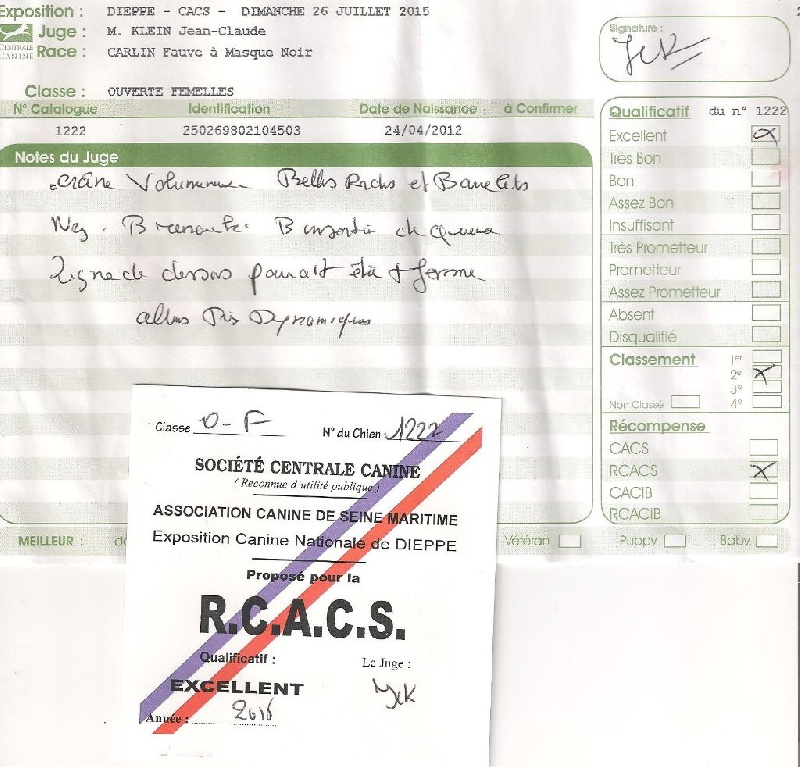 Exposition : DIEPPE - CACS - DIMANCHE 26 JUILLET 2015
Juge : M. KLEIN Jean-Claude
CENTRALE CANINE
Race : CARLIN Fauve à Masque Noir
Signature :
Classe : OUVERTE FEMELLES
N° Catalogue Identification Date de Naissance à Confirmer
1222 250269802104503 24/04/2012
Notes du Juge
crâne Volumineux Belles Rides et
Nez
Ligne de dessous pourait être + ferme
allures très Dynamiques
Qualificatif du n° 1222
Excellent
Très Bon
Bon
Assez Bon
Insuffisant
Très Prometteur
Prometteur
Assez Prometteur
Absent
Disqualifié
Classement 1er
2e
3e
Non Classé 4e
Récompense
CACS
RCACS
CACIB
RCACIB
MEILLEUR : Vétéran Puppy Baby
Classe O-F N° du Chien 1222
SOCIÉTÉ CENTRALE CANINE
(Reconnue d'utilité publique)
ASSOCIATION CANINE DE SEINE MARITIME
Exposition Canine Nationale de DIEPPE
Proposé pour la
R.C.A.C.S.
Qualificatif : Le Juge :
EXCELLENT
Année : 2015